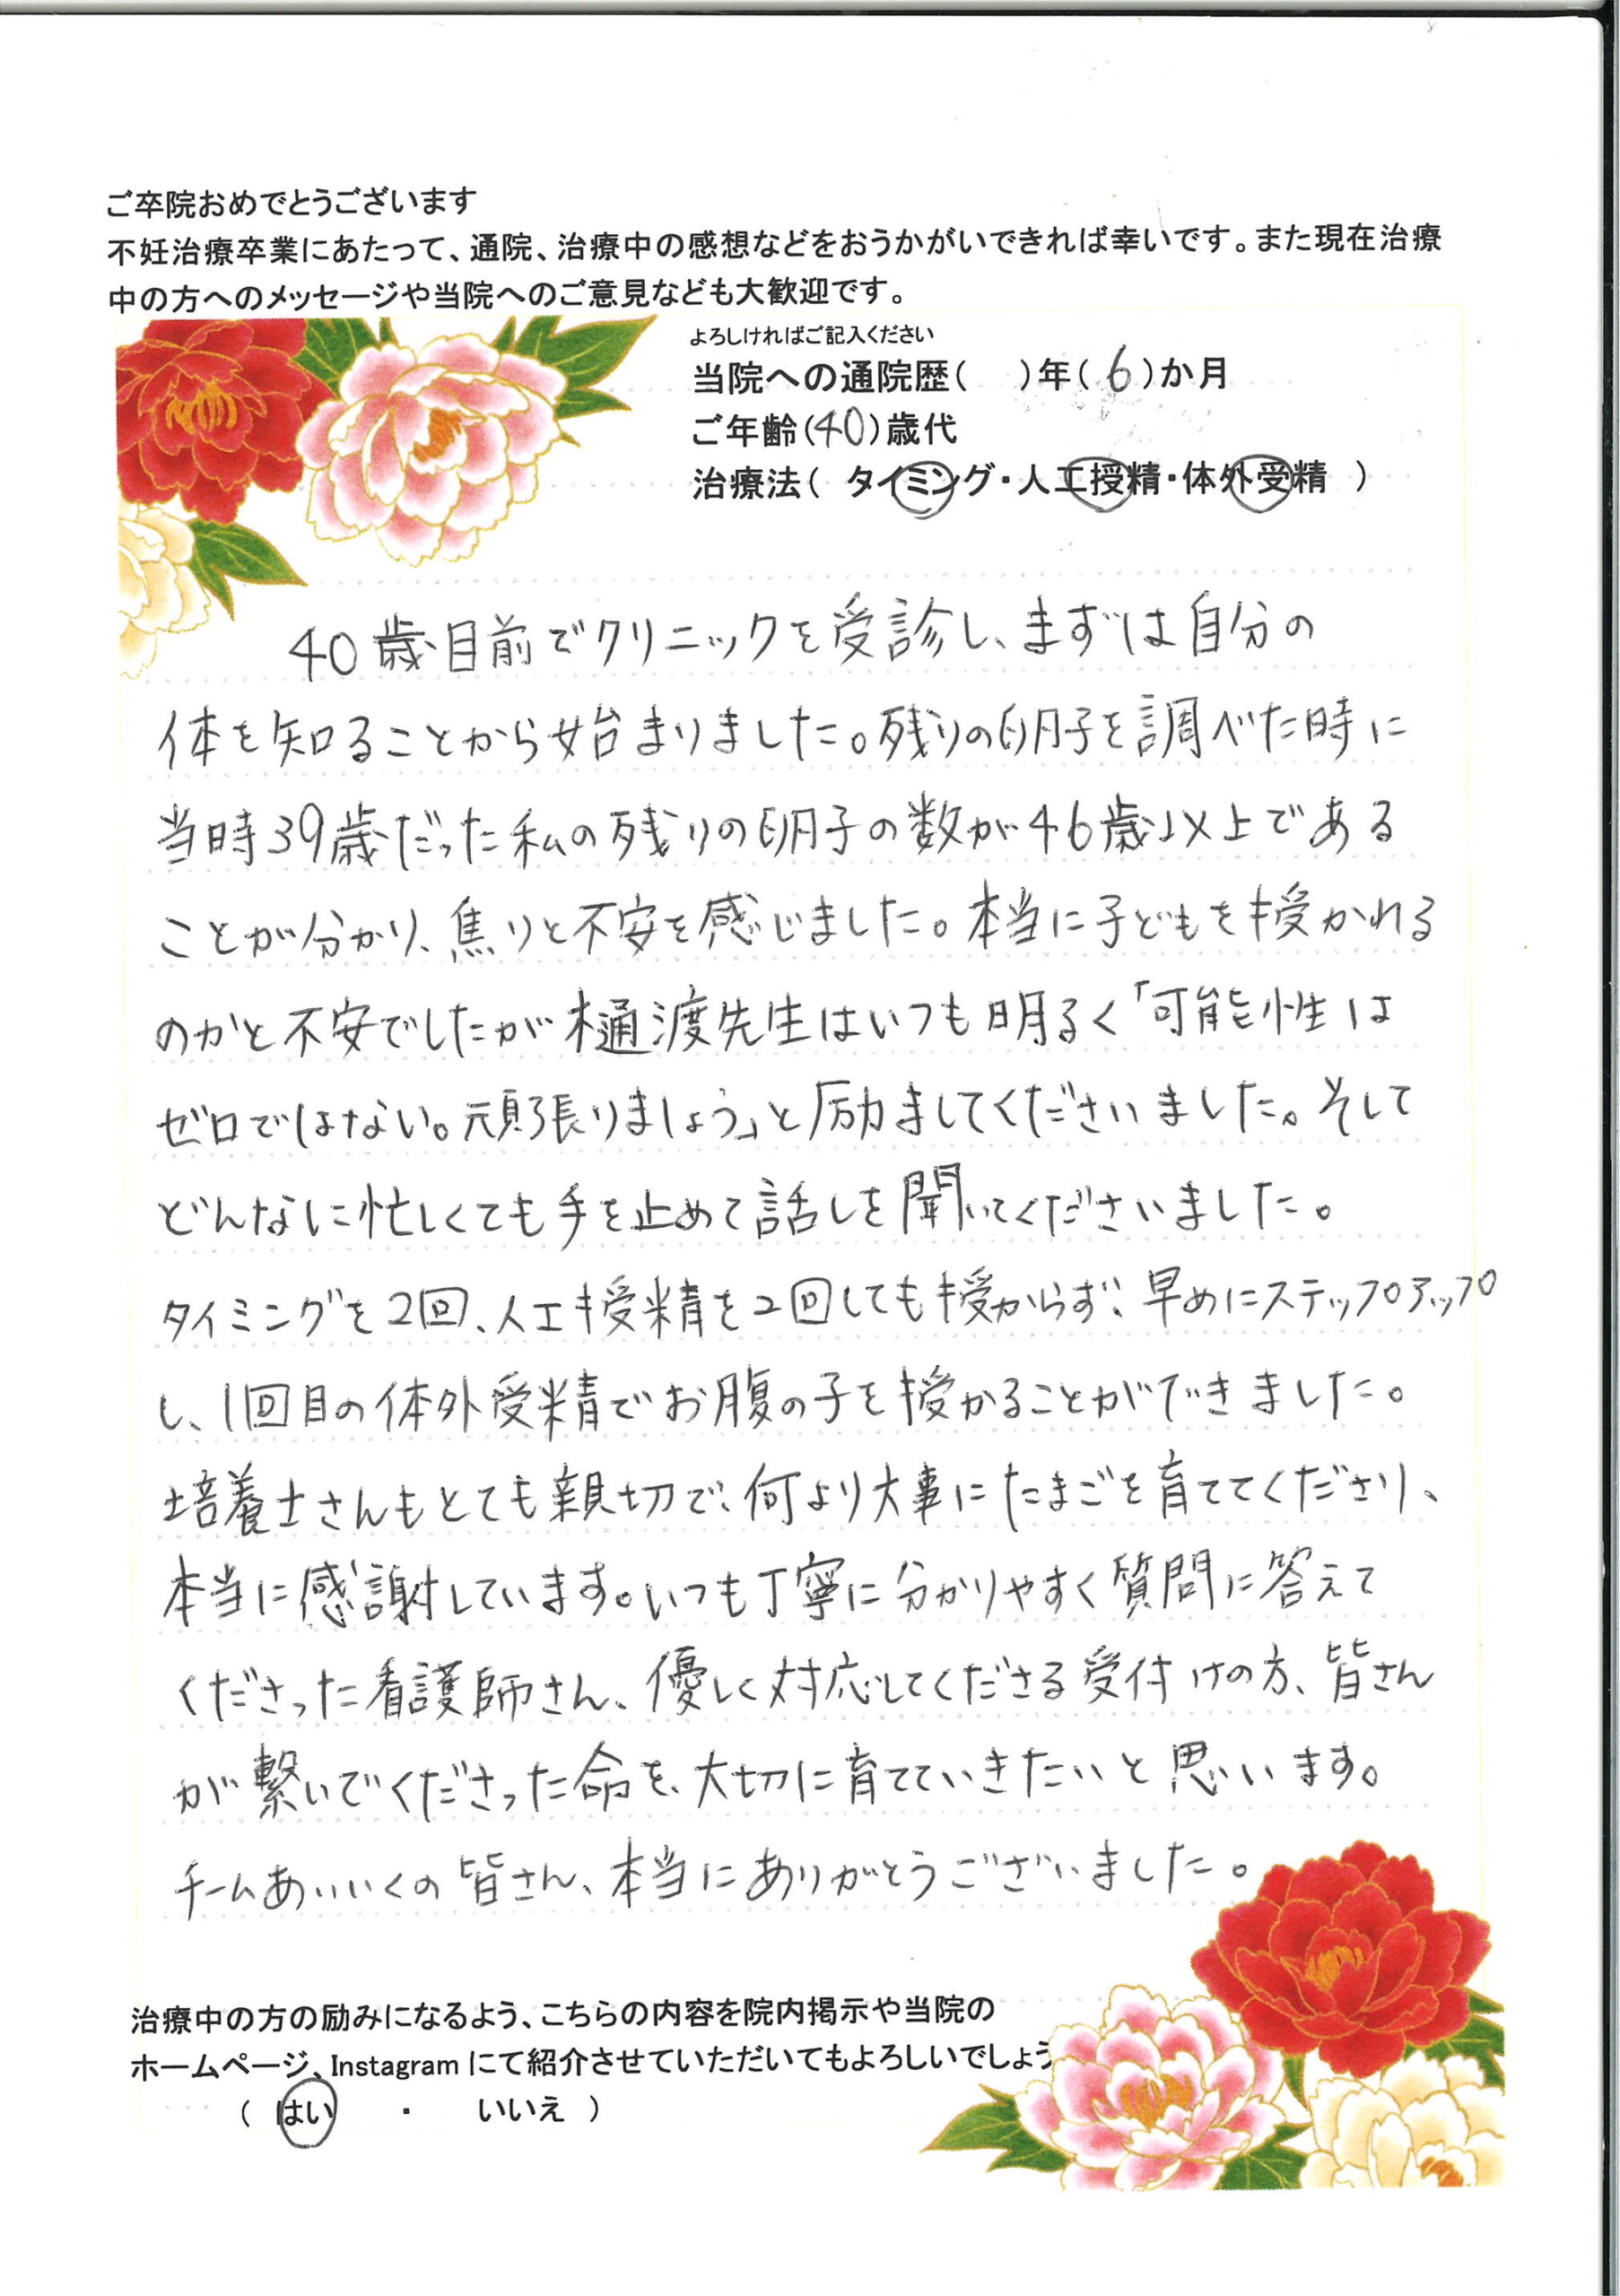 ご卒院おめでとうございます
不妊治療卒業にあたって、通院、治療中の感想などをおうかがいできれば幸いです。また現在治療
中の方へのメッセージや当院へのご意見なども大歓迎です。
よろしければご記入ください
当院への通院歴(　)年(6)か月
ご年齢(40)歳代
治療法( タイミング・人工授精・体外受精 )
40歳目前でクリニックを受診し、まずは自分の
体を知ることから始まりました。残りの卵子を調べた時に
当時39歳だった私の残りの卵子の数が46歳以上である
ことが分かり、焦りと不安を感じました。本当に子どもを授かれる
のかと不安でしたが樋渡先生はいつも明るく「可能性は
ゼロではない。頑張りましょう」と励ましてくださいました。そして
どんなに忙しくても手を止めて話しを聞いてくださいました。
タイミングを2回、人工授精を2回しても授からず、早めにステップアップ
し、1回目の体外受精でお腹の子を授かることができました。
培養士さんもとても親切で、何より大事にたまごを育ててくださり、
本当に感謝しています。いつも丁寧に分かりやすく質問に答えて
くださった看護師さん、優しく対応してくださる受付けの方、皆さん
が繋いでくださった命を、大切に育てていきたいと思います。
チームあいいくの皆さん、本当にありがとうございました。
治療中の方の励みになるよう、こちらの内容を院内掲示や当院の
ホームページ、Instagramにて紹介させていただいてもよろしいでしょう
( はい ・ いいえ )